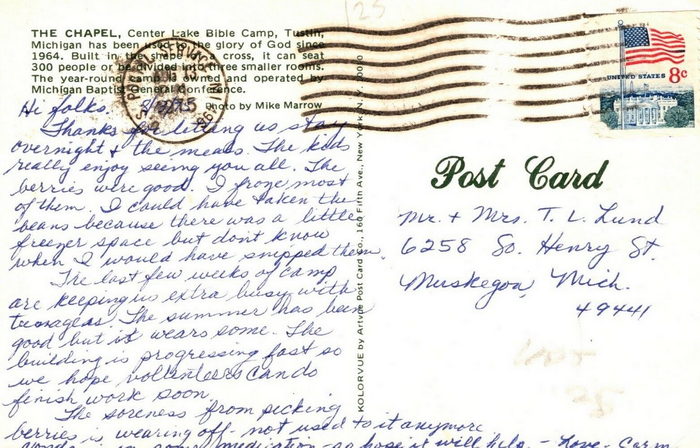 THE CHAPEL, Center Lake Bible Camp, Tustin,
Michigan has been used for the glory of God since
1964. Built in the shape of a cross, it can seat
300 people or be divided into three smaller rooms.
The year-round camp is owned and operated by
Michigan Baptist General Conference.
Photo by Mike Marrow
Hi folks.
Thanks for letting us stay
overnight & the meals. The kids
really enjoy seeing you all. The
berries were good. I froze most
of them. I could have taken the
beans because there was a little
freezer space but don't know
when I would have snipped them.
The last few weeks of camp
are keeping us extra busy with
teenagers. The summer has been
good but it wears some. The
building is progressing fast so
we hope vollenteers can do
finish work soon.
The soreness from picking
berries is wearing off - not used to it anymore
medication - so hope it will help. - Love - Carm
KOLORVUE by Artvue Post Card Co., 160 Fifth Ave., New York, N. Y. 10010
UNITED STATES 8c
Post Card
Mr. + Mrs. T. L. Lund
6258 So. Henry St.
Muskegon, Mich.
49441
25